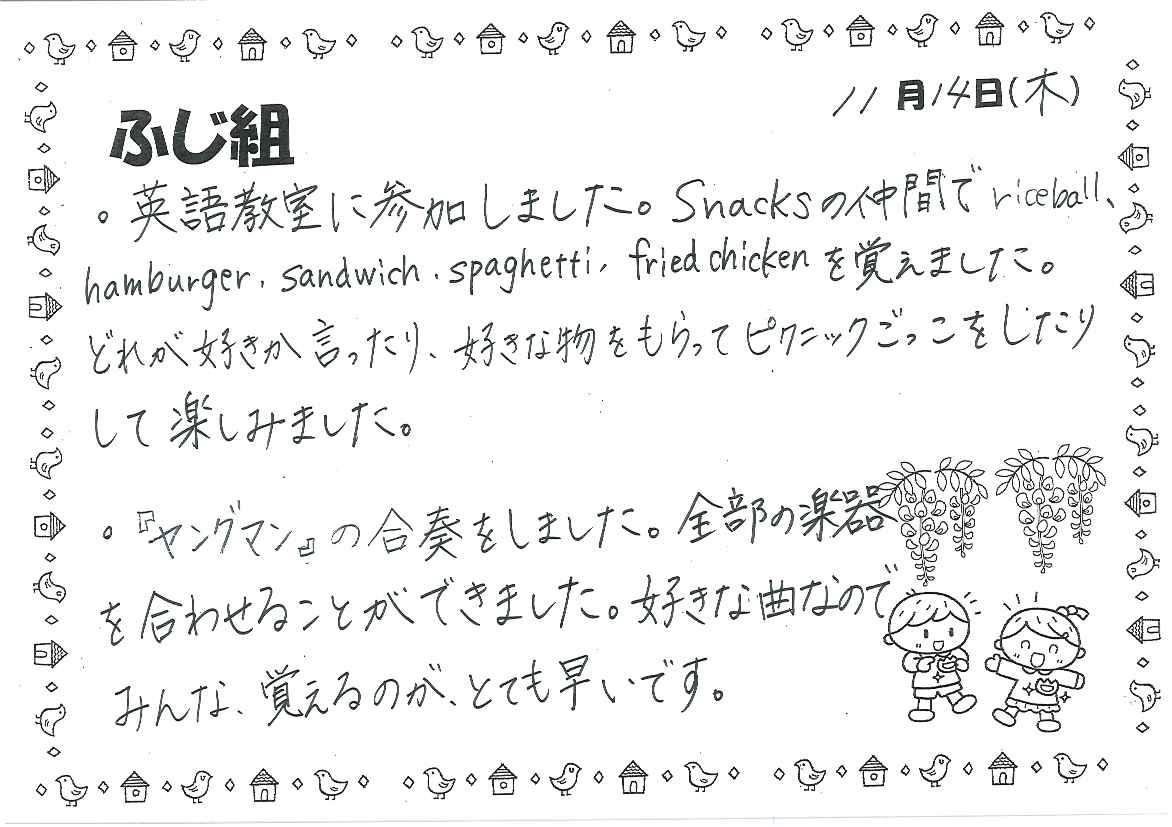 11月14日(木)
ふじ組
。英語教室に参加しました。Snacksの仲間でriceball、
hamburger, sandwich, spaghetti, fried chickenを覚えました。
どれが好きか言ったり、好きな物をもらってピクニックごっこをしたり
して楽しみました。
。『ヤングマン』の合奏をしました。全部の楽器
を合わせることができました。好きな曲なので
みんな、覚えるのが、とても早いです。